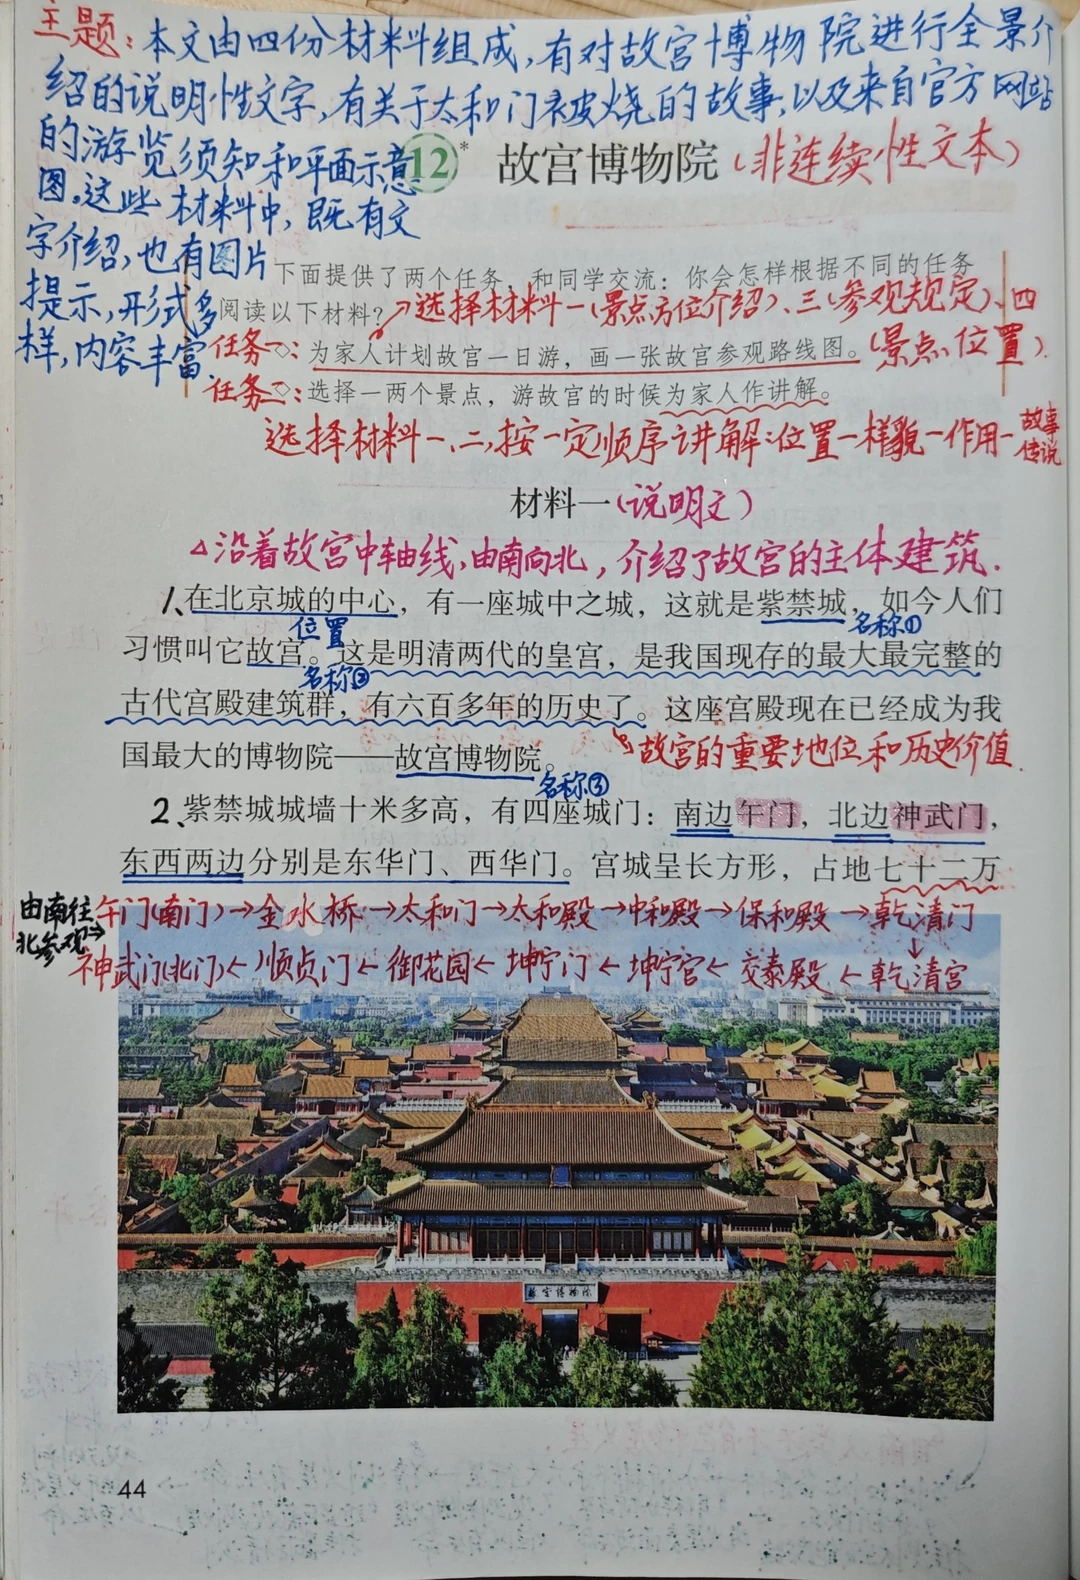 主题:本文由四份材料组成,有对故宫博物院进行全景介
绍的说明性文字,有关于太和门被烧的故事,以及来自官方网站
的游览须知和平面示意
图。这些材料中,既有文
字介绍,也有图片
提示,形式多
样,内容丰富.
12* 故宫博物院(非连续性文本)
下面提供了两个任务,和同学交流:你会怎样根据不同的任务
阅读以下材料?→选择材料一(景点方位介绍)、三(参观规定)、四
(景点位置).
任务一◇:为家人计划故宫一日游,画一张故宫参观路线图。
任务二◇:选择一两个景点,游故宫的时候为家人作讲解。
选择材料一、二,按一定顺序讲解:位置—样貌—作用—故事
传说
材料一(说明文)
△沿着故宫中轴线,由南向北,介绍了故宫的主体建筑.
1、在北京城的中心,有一座城中之城,这就是紫禁城,如今人们
位置 名称①
习惯叫它故宫。这是明清两代的皇宫,是我国现存的最大最完整的
名称②
古代宫殿建筑群,有六百多年的历史了。这座宫殿现在已经成为我
国最大的博物院——故宫博物院。 故宫的重要地位和历史价值.
名称③
2、紫禁城城墙十米多高,有四座城门:南边午门,北边神武门,
东西两边分别是东华门、西华门。宫城呈长方形,占地七十二万
由南往
北参观→
午门(南门)→金水桥→太和门→太和殿→中和殿→保和殿→乾清门
↓
神武门(北门)←顺贞门←御花园←坤宁门←坤宁宫←交泰殿←乾清宫
故宫博物院
44